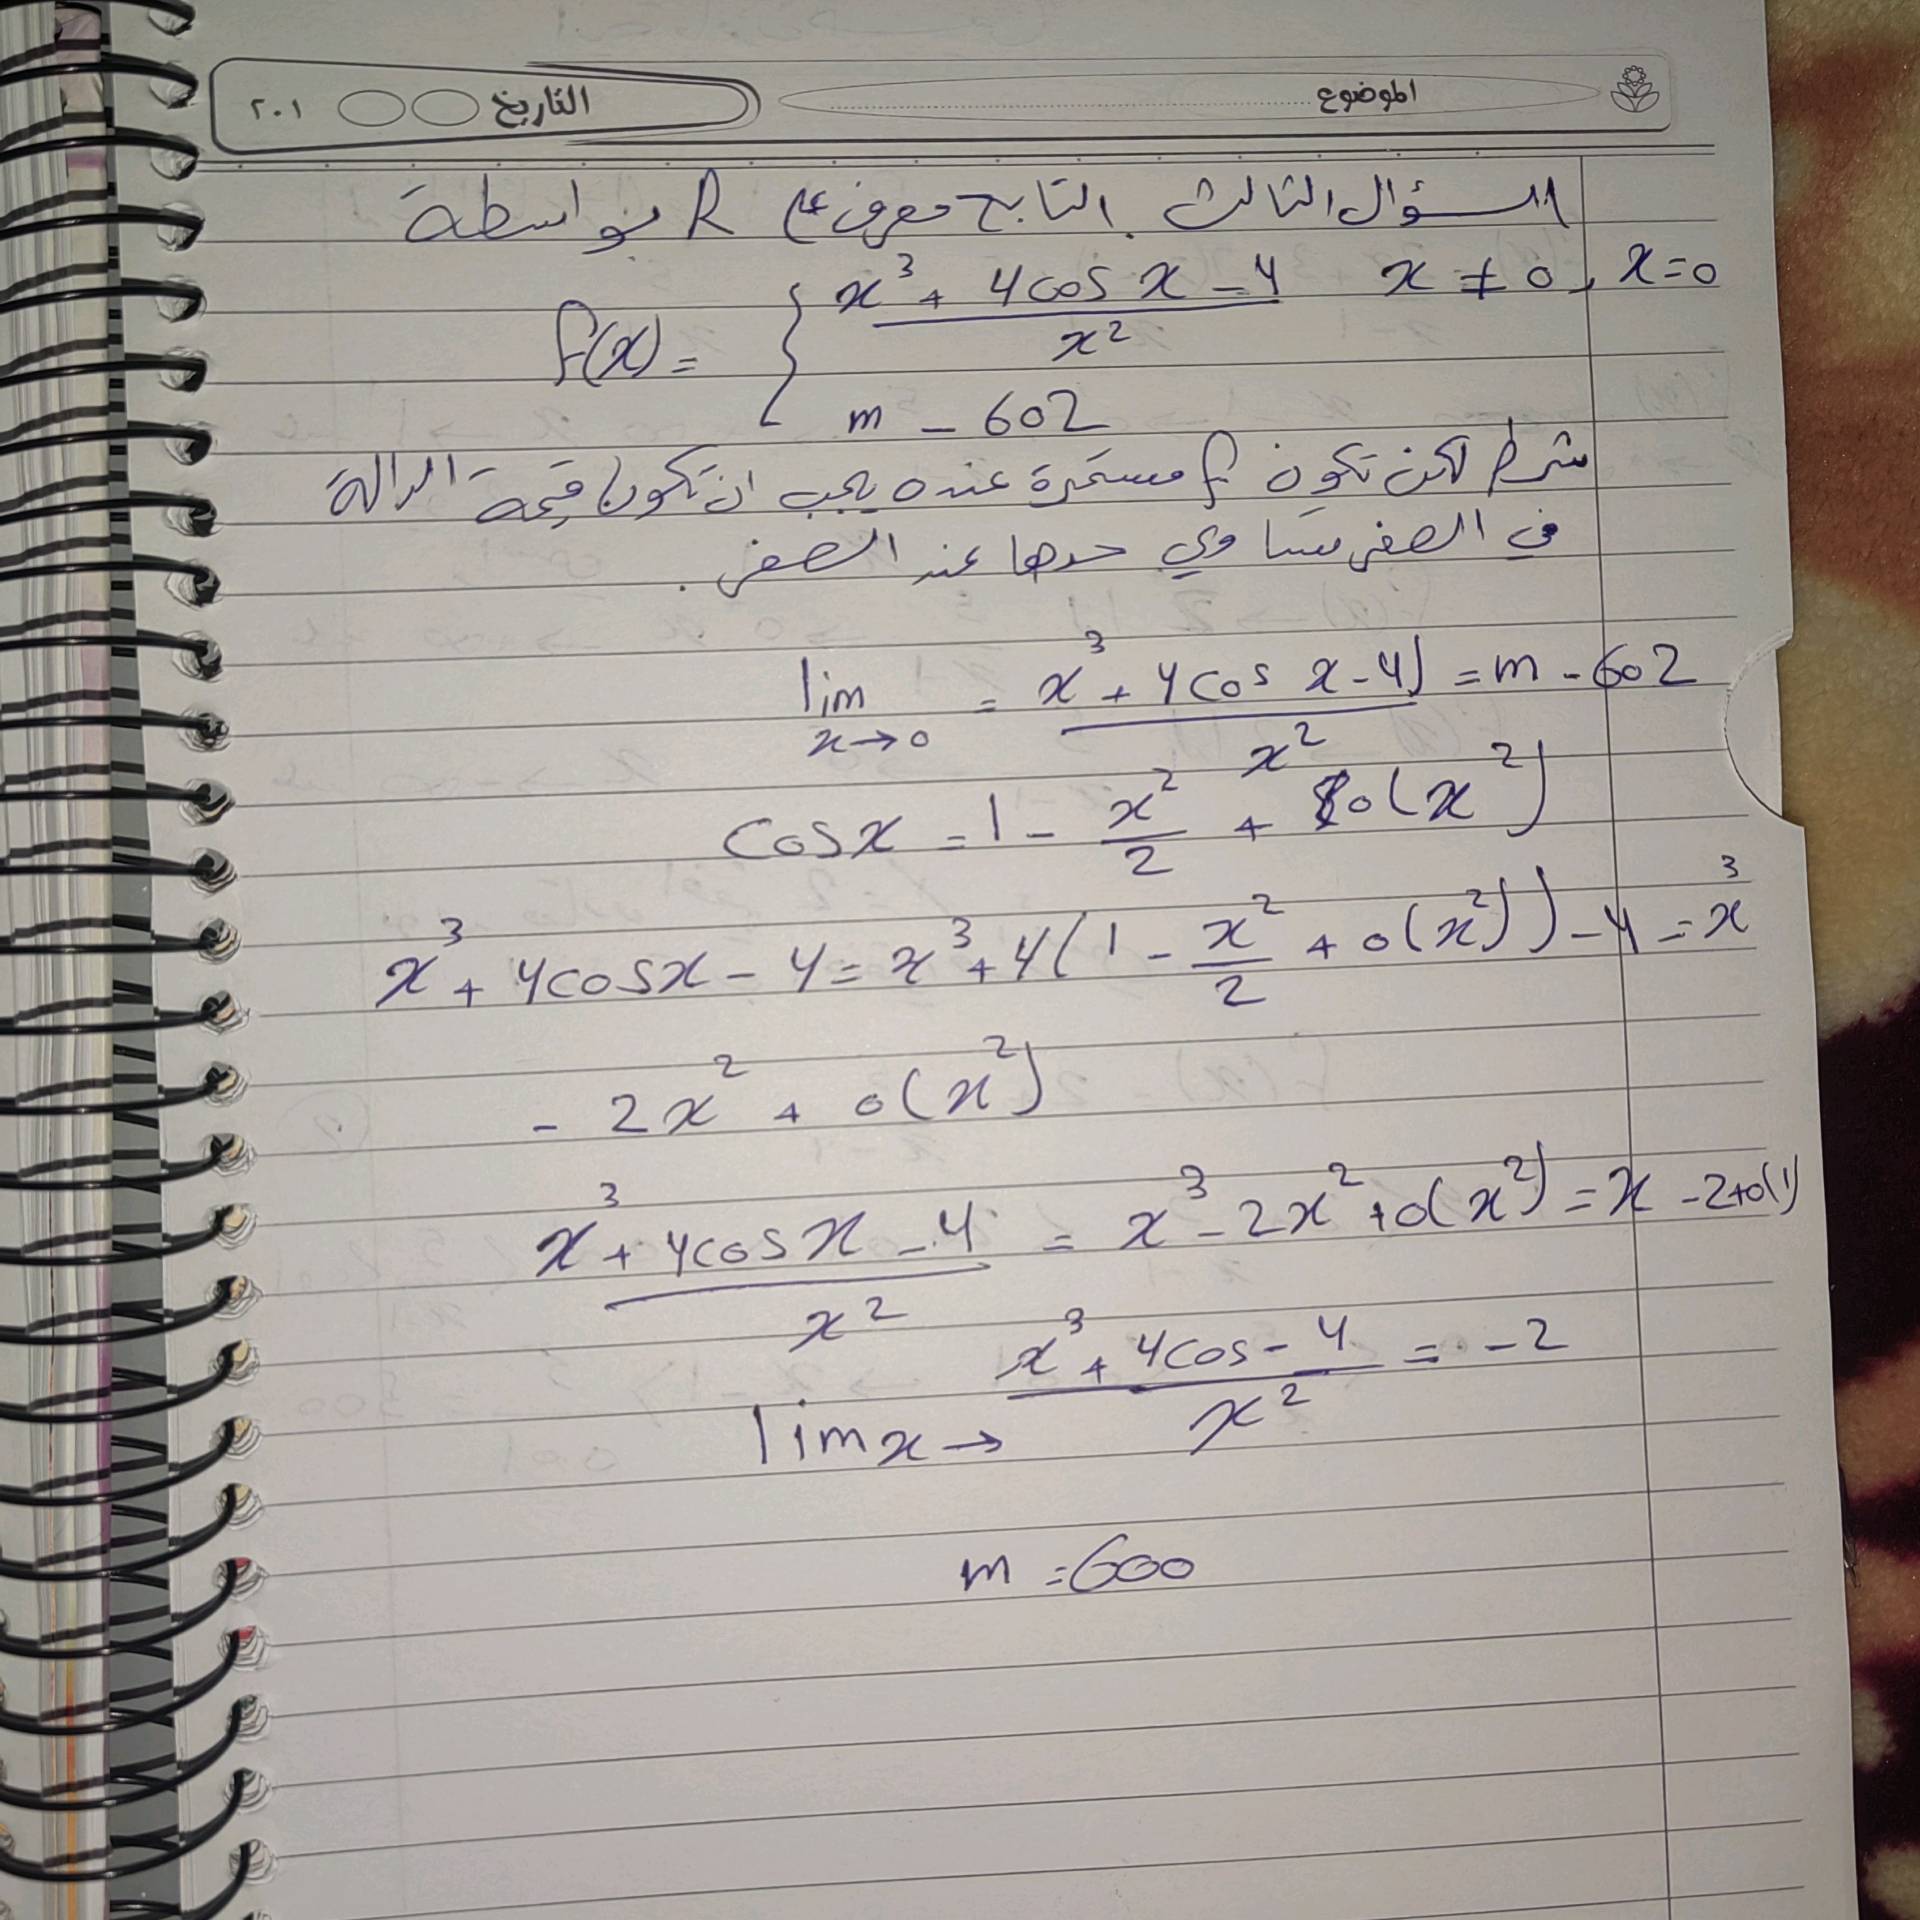 الموضوع
التاريخ ٢٠١
السؤال الثالث. التابع معرف على R بواسطة
f(x) = { x³ + 4cos x - 4 / x² x ≠ 0, x = 0
m - 602
شرط لكن تكون f مستمرة عند 0 يجب ان تكون قيمة الدالة
في الصفر تساوي حدها عند الصفر.
lim x→0 = x³ + 4cos x - 4) / x² = m - 602
cosx = 1 - x²/2 + o(x²)
x³ + 4cosx - 4 = x³ + 4(1 - x²/2 + o(x²)) - 4 = x³
- 2x² + o(x²)
x³ + 4cosx - 4 / x² = x³ - 2x² + o(x²) = x - 2 + o(1)
lim x→ x³ + 4cos - 4 / x² = -2
m = 600